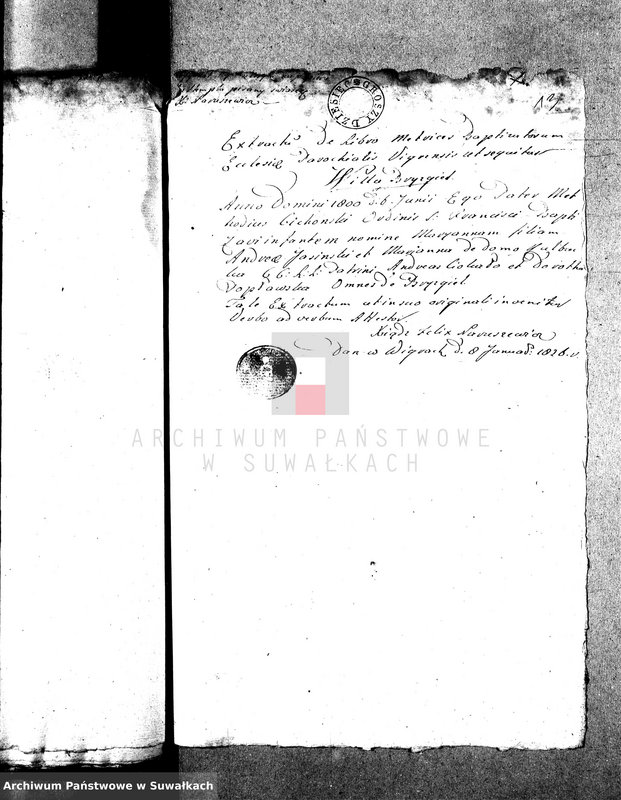 pisany
X. Naruszewicz
DZIESIĘĆ GROSZY
12
Extractus De Libro Metrices Baptizatorum
Ecclesiæ Parochialis Vigrensis ut sequitur
Willa Bryzgiel
Anno Domini 1800 d. 6. Junii Ego Pater Met
hodius Cichonski Ordinis S. Francisci Bapti
zavi infantem nomine Maryannam filiam
Andreæ Jasinski et Maryanna de domo
Patrini Andreas et Dorothea
Omnes de Bryzgiel
Tale Extractum ut in suo originali invenitur
Verbo ad verbum Attestor
Xiądz Felix Naruszewicz
Dan w Wigrach d. 8 Januar. 1826. r.
ARCHIWUM PAŃSTWOWE
W SUWAŁKACH
Archiwum Państwowe w Suwałkach